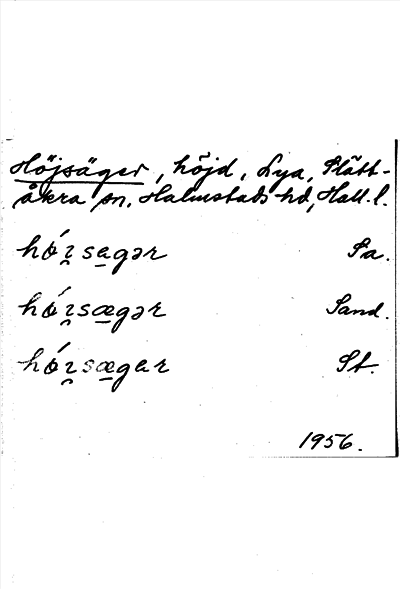 Höjsäger, höjd, Lya, Slätt-
åkra sn, Halmstads hd, Hall. l.
hǿɪ̯sa̠gər Sa.
hǿɪ̯sæ̠gər Sand.
hǿɪ̯sæ̠gar St.
1956.